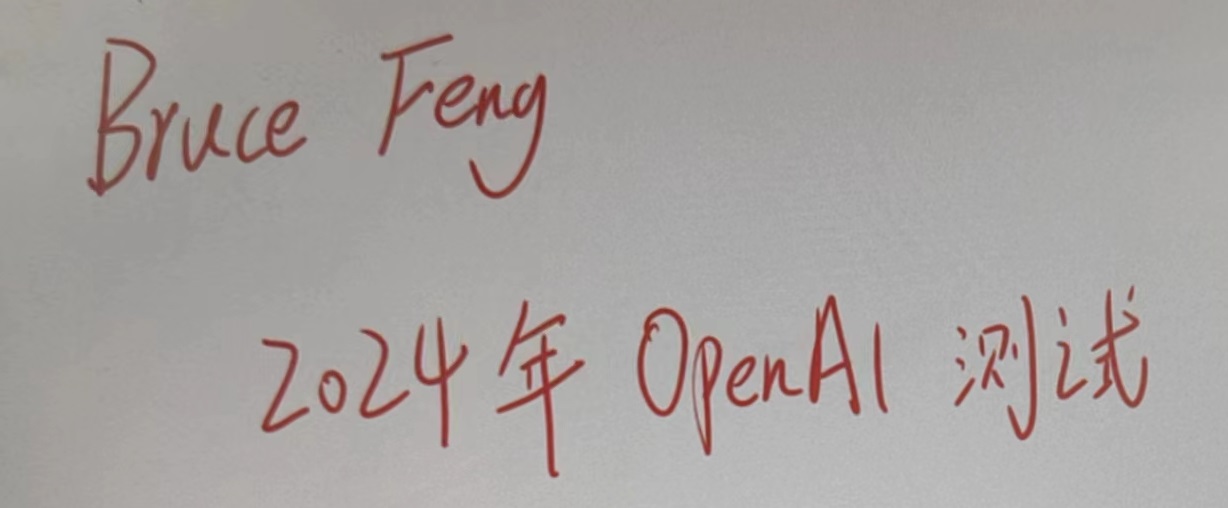 Bruce Feng
2024年 OpenAI 测试